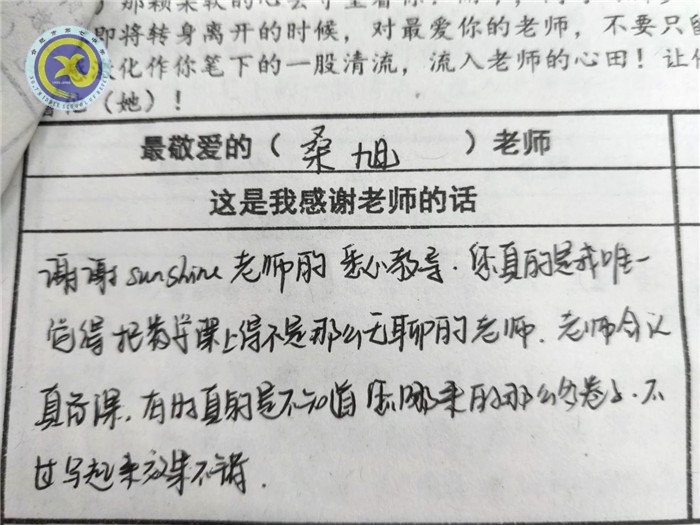 那颗柔软的心会守望着你
即将转身离开的时候，对最爱你的老师，不要只留
化作你笔下的一股清流，流入老师的心田！让他
（她）！
最敬爱的（桑旭）老师
这是我感谢老师的话
谢谢sunshine老师的悉心教导.您真的是我唯一
觉得把数学课上得不是那么无聊的老师.老师会认
真备课.有时真的是不知道您哪来的那么多卷子.不
过写起来效果不错.